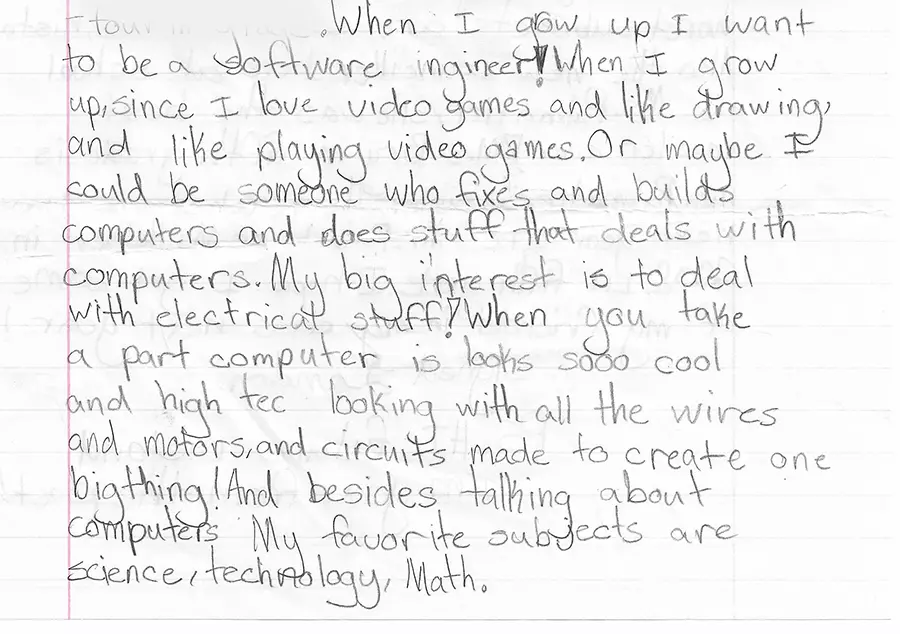 .When I grow up I want
to be a software ingineer! When I grow
up, since I love video games and like drawing,
and like playing video games. Or maybe I
could be someone who fixes and builds
computers and does stuff that deals with
computers. My big interest is to deal
with electrical stuff! When you take
a part computer is looks sooo cool
and high tec looking with all the wires
and motors, and circuits made to create one
big thing! And besides talking about
computers My favorite subjects are
science, technology, Math.